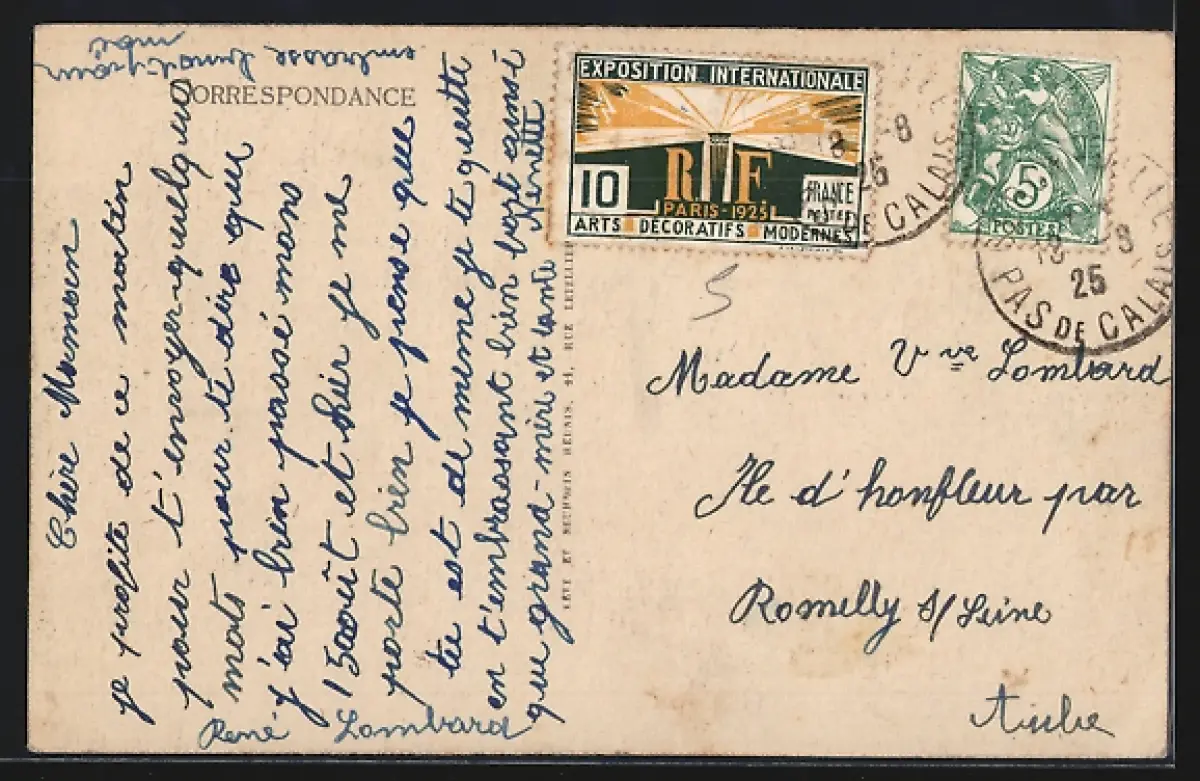 CORRESPONDANCE
Chère Maman
je profite de ce matin
pour t'envoyer quelques
mots pour te dire que
j'ai bien passé mons
15 août et hier je me
porte bien je pense que
tu est de meme je te quitte
en t'embrassant bien fort ainsi
que grand-mère et tante Nenette
René Lombard
embrasse
moi
LÉVY ET NEURDEIN RÉUNIS, 44, RUE LETELLIER
EXPOSITION INTERNATIONALE
10
RF.
PARIS-1925
FRANCE
POSTES
ARTS DÉCORATIFS MODERNES
18 -8
25
PAS DE CALAIS
5c
POSTES
18 8
25
PAS DE CALAIS
5
Madame Vve Lombard
Ile d'honfleur par
Romilly s/Seine
Aube